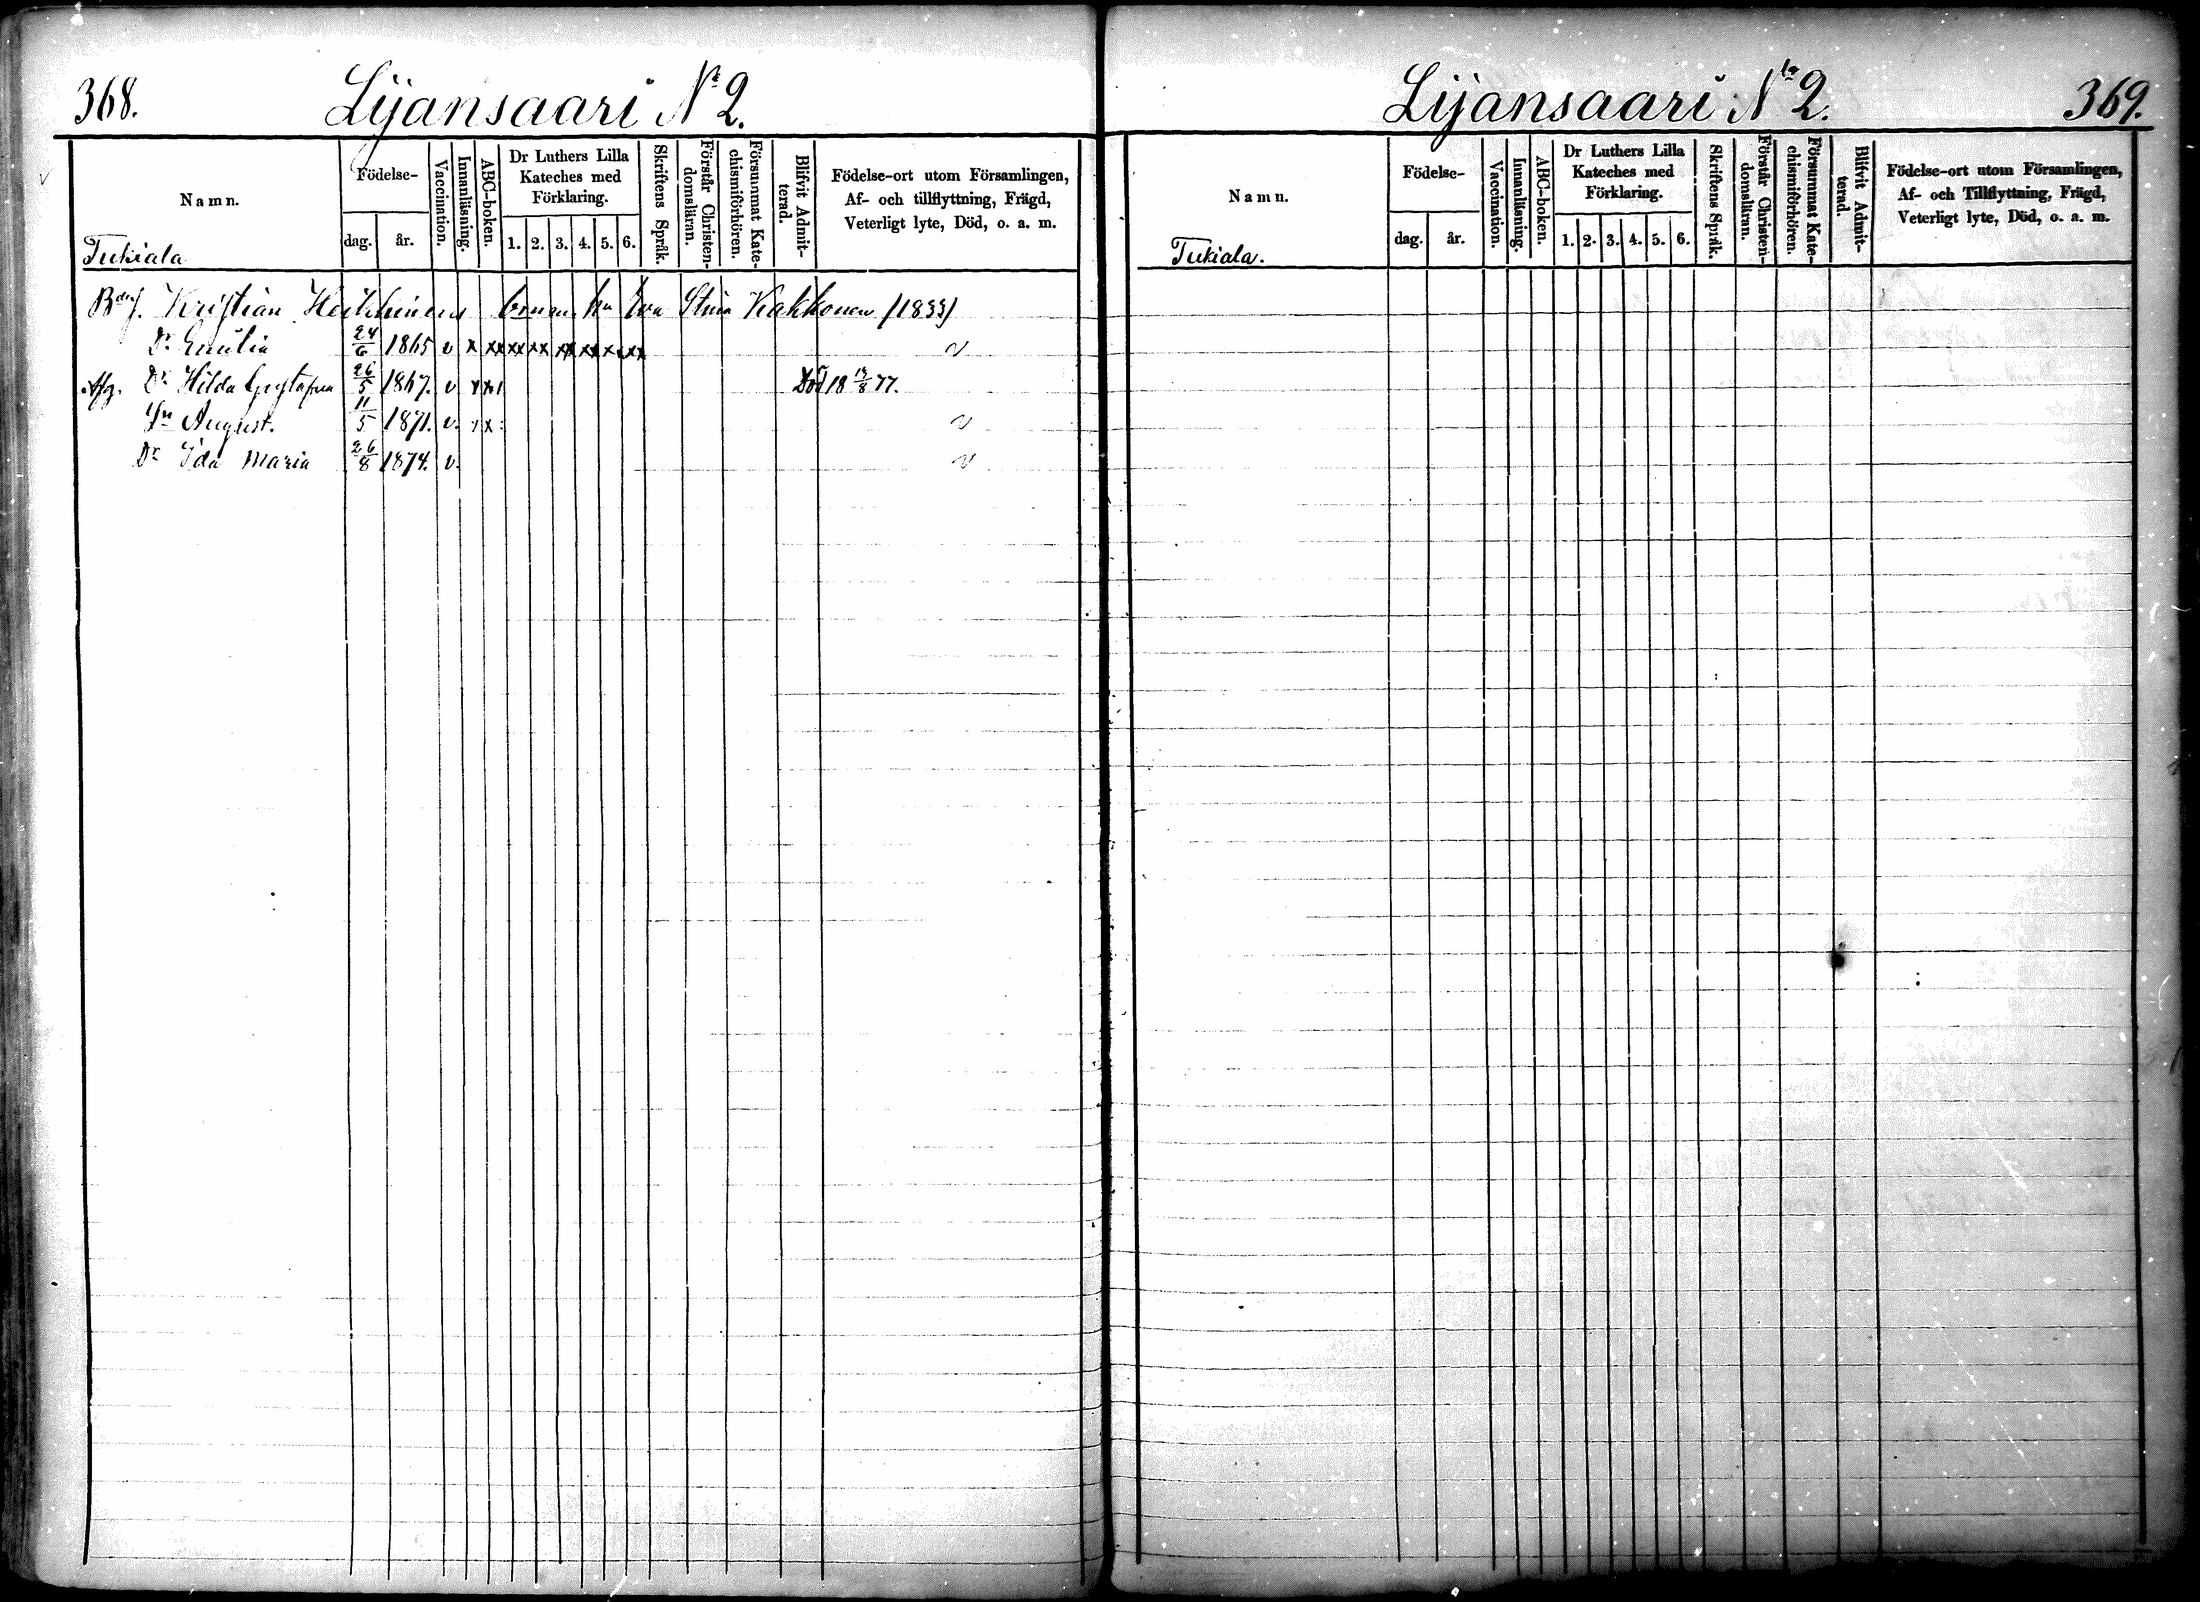 368. Lijansaari No 2.
Namn.
Födelse-
dag. år.
Vaccination.
Innanläsning.
ABC-boken.
Dr Luthers Lilla
Kateches med
Förklaring.
1. 2. 3. 4. 5. 6.
Skriftens Språk.
Förstår Christen-
domsläran.
Försummat Kate-
chismiförhören.
Blifvit Admit-
terad.
Födelse-ort utom Församlingen,
Af- och tillflyttning, Frägd,
Veterligt lyte, Död, o. a. m.
Tukiala
Kristian Heikkinens Eva Stina Kakkonen (1833)
Dr Emilia 24/6 1865 v x xx xx xx xx xx x xx v
Dr Hilda Gustafva 26/5 1867. v x x Död 18 13/8 77.
Sn August. 11/5 1871. v. x x v
Dr Ida Maria 26/8 1874. v. v
Lijansaari No 2. 369.
Namn.
Födelse-
dag. år.
Vaccination.
Innanläsning.
ABC-boken.
Dr Luthers Lilla
Kateches med
Förklaring.
1. 2. 3. 4. 5. 6.
Skriftens Språk.
Förstår Christen-
domsläran.
Försummat Kate-
chismiförhören.
Blifvit Admit-
terad.
Födelse-ort utom Församlingen,
Af- och Tillflyttning, Frägd,
Veterligt lyte, Död, o. a. m.
Tukiala.